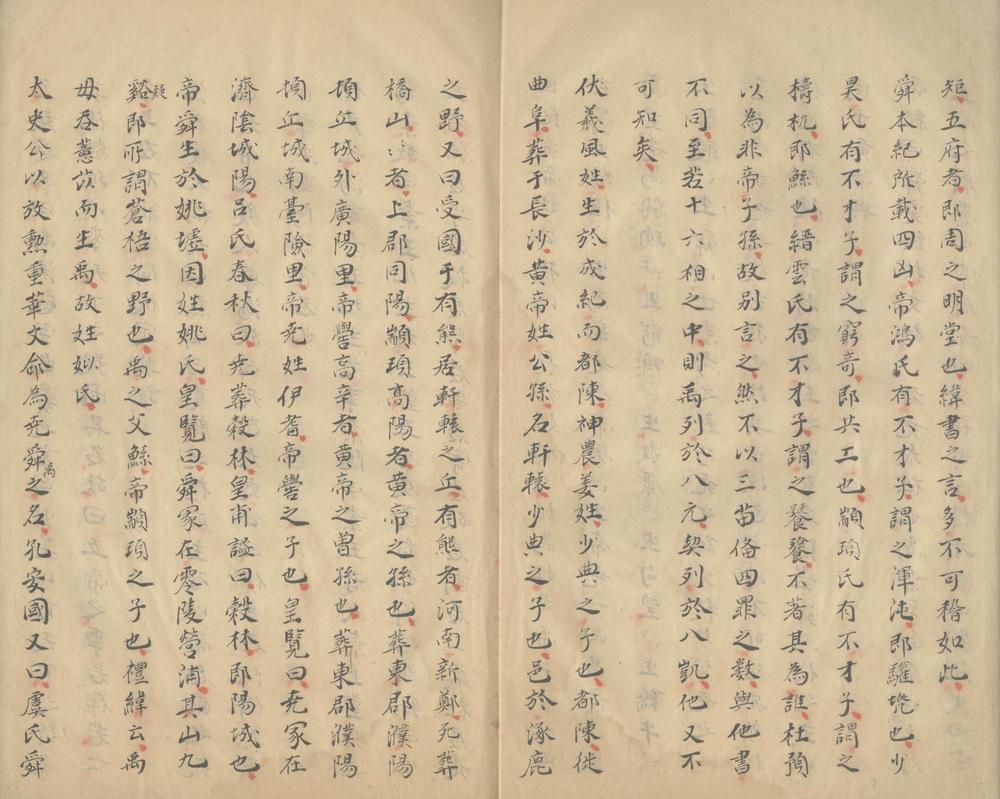 矩五府者即周之明堂也緯書之言多不可稽如此
舜本紀所載四凶帝鴻氏有不才子謂之渾沌即驩兠也少
昊氏有不才子謂之窮奇即共工也顓頊氏有不才子謂之
檮杌即鯀也縉雲氏有不才子謂之饕餮不著其為誰杜預
以為非帝子孫故别言之然不以三苗俻四罪之數與他書
不同至若十六相之中則禹列於八元契列於八凱他又不
可知矣
伏羲風姓生於成紀而都陳神農姜姓少典之子也都陳徙
曲阜葬于長沙黄帝姓公孫名軒轅少典之子也邑於涿鹿
之野又曰受國于有熊居軒轅之丘有熊者河南新鄭死葬
橋山〻者上郡同陽顓頊高陽者黄帝之孫也葬東郡濮陽
頊丘城外廣陽里帝嚳高辛者黄帝之曾孫也葬東郡濮陽
頊丘城南臺險里帝尭姓伊耆帝嚳之子也皇覽曰尭冢在
濟陰城陽吕氏春秋曰尭葬榖林皇甫謐曰榖林即陽城也
帝舜生於姚墟因姓姚氏皇覽曰舜冢在零陵營浦其山九
谿疑即所謂蒼梧之野也禹之父鯀帝顓頊之子也禮緯云禹
母吞薏苡而生禹故姓姒氏
太史公以放勲重華文命為尭舜禹之名孔安國又曰虞氏舜